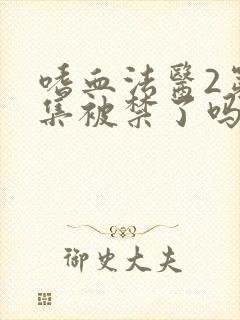 嗜血法醫2第
集被禁了吗
御史大夫